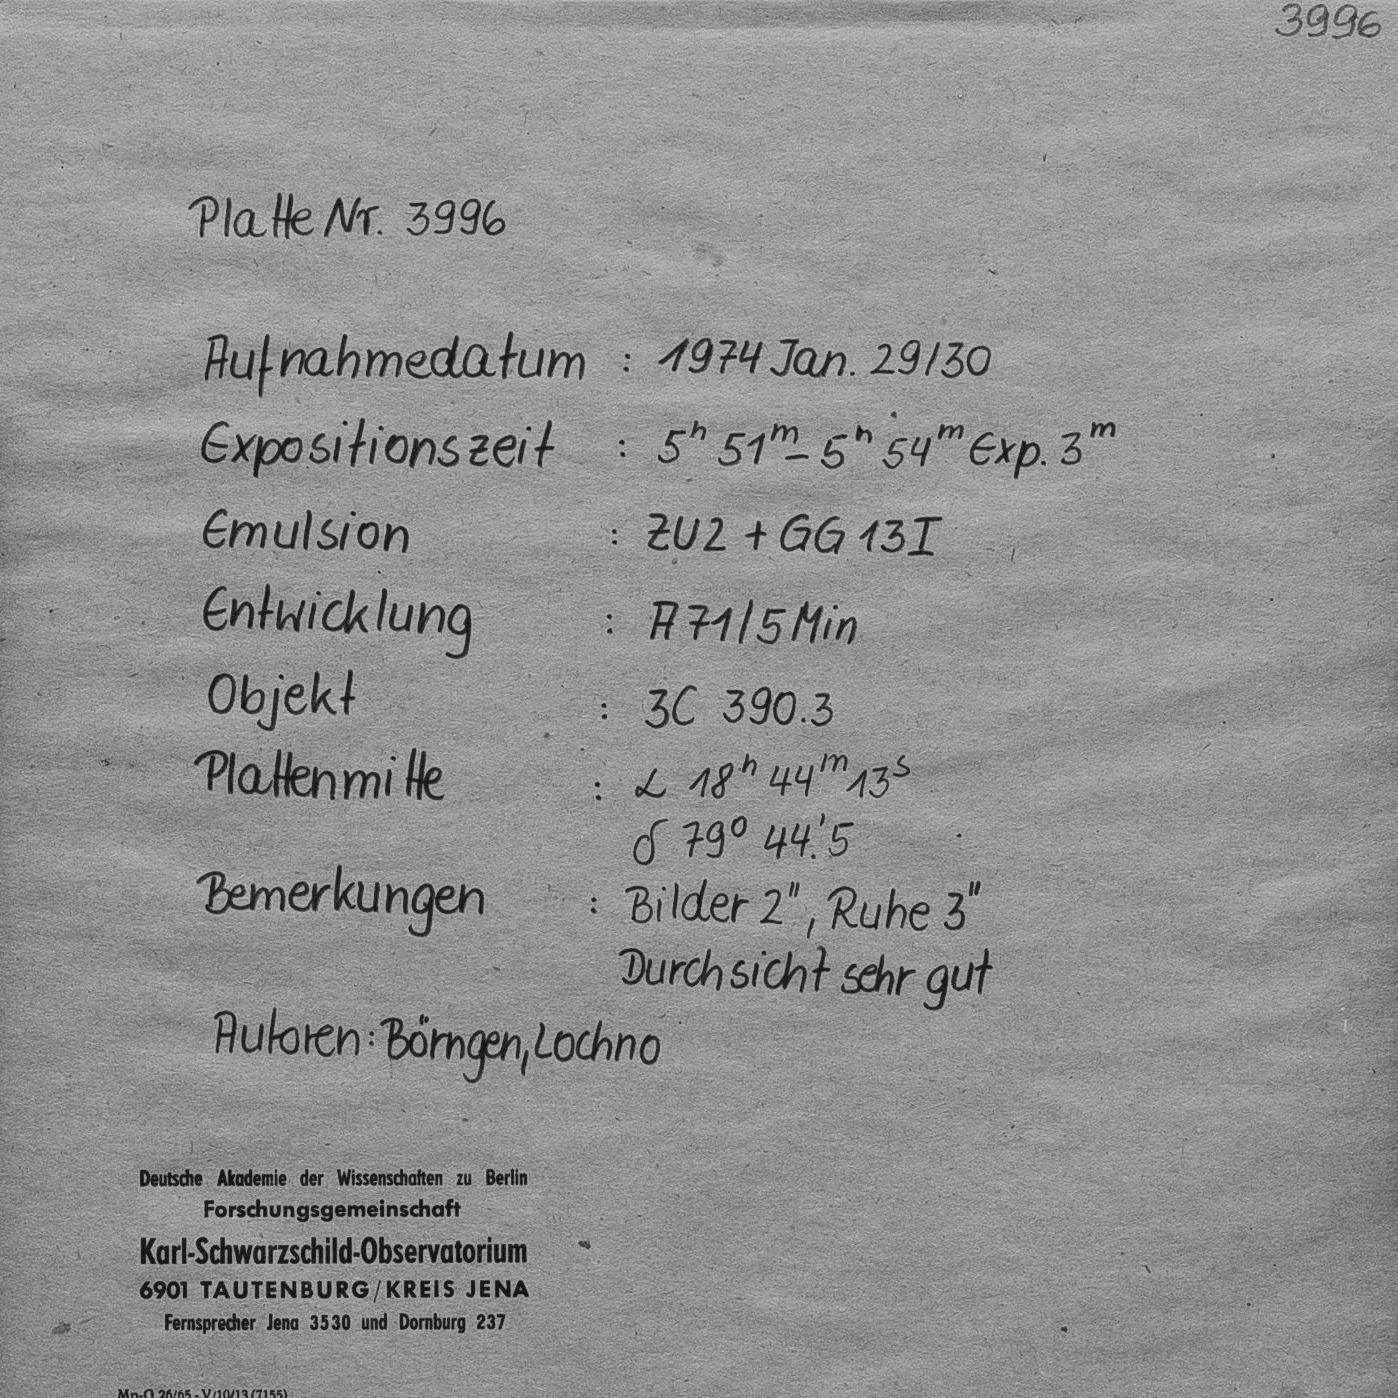 3996
Platte Nr. 3996
Aufnahmedatum : 1974 Jan. 29/30
Expositionszeit : 5ʰ 51ᵐ – 5ʰ 54ᵐ Exp. 3ᵐ
Emulsion : ZU2 + GG 13 I
Entwicklung : A 71/5 Min
Objekt : 3C 390.3
Plattenmitte : α 18ʰ 44ᵐ 13ˢ
δ 79° 44.'5
Bemerkungen : Bilder 2", Ruhe 3"
Durchsicht sehr gut
Autoren: Börngen, Lochno
Deutsche Akademie der Wissenschaften zu Berlin
Forschungsgemeinschaft
Karl-Schwarzschild-Observatorium
6901 TAUTENBURG/KREIS JENA
Fernsprecher Jena 3530 und Dornburg 237
Mp-Q 26/65 - V/10/13 (7155)